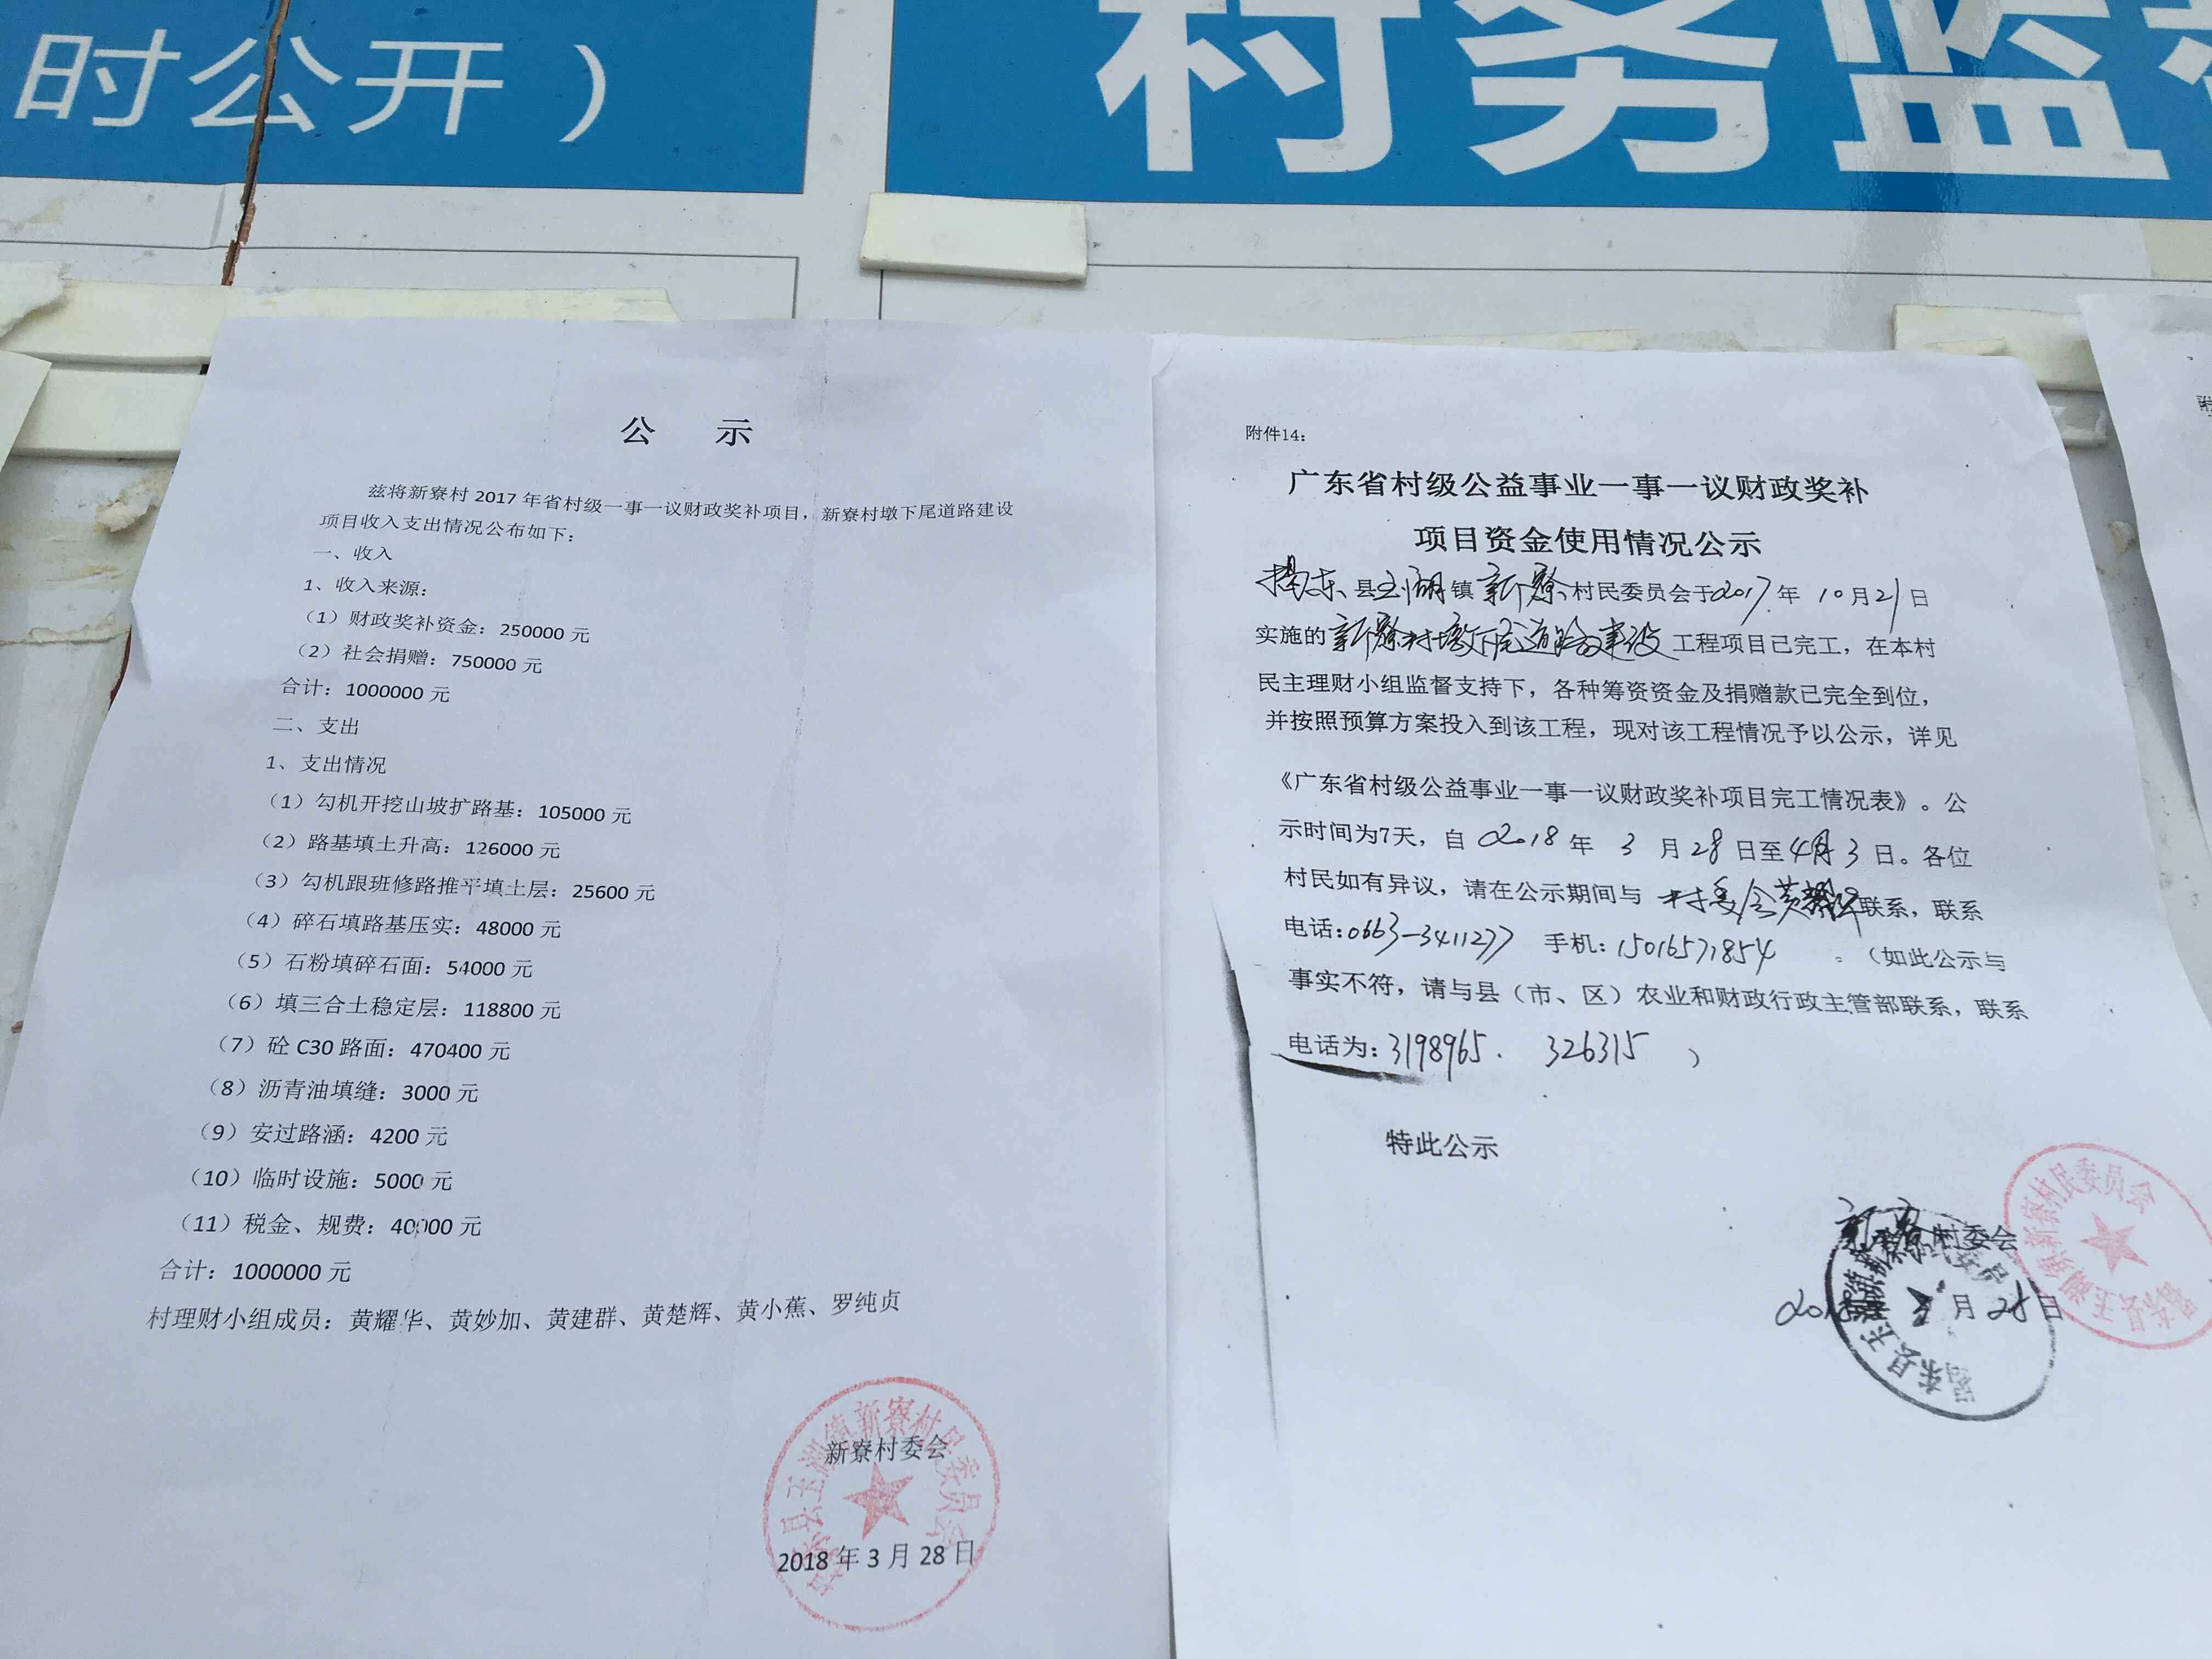 时公开）
村务监
公 示
兹将新寮村 2017 年省村级一事一议财政奖补项目，新寮村墩下尾道路建设
项目收入支出情况公布如下：
一、收入
1、收入来源：
（1）财政奖补资金：250000 元
（2）社会捐赠：750000 元
合计：1000000 元
二、支出
1、支出情况
（1）勾机开挖山坡扩路基：105000 元
（2）路基填土升高：126000 元
（3）勾机跟班修路推平填土层：25600 元
（4）碎石填路基压实：48000 元
（5）石粉填碎石面：54000 元
（6）填三合土稳定层：118800 元
（7）砼 C30 路面：470400 元
（8）沥青油填缝：3000 元
（9）安过路涵：4200 元
（10）临时设施：5000 元
（11）税金、规费：40000 元
合计：1000000 元
村理财小组成员：黄耀华、黄妙加、黄建群、黄楚辉、黄小蕉、罗纯贞
新寮村委会
2018 年 3 月 28 日
揭东县玉湖镇新寮村民委员会
附件14：
广东省村级公益事业一事一议财政奖补
项目资金使用情况公示
揭东县玉湖镇新寮村民委员会于2017年 10月21日
实施的新寮村墩下尾道路建设工程项目已完工，在本村
民主理财小组监督支持下，各种筹资资金及捐赠款已完全到位，
并按照预算方案投入到该工程，现对该工程情况予以公示，详见
《广东省村级公益事业一事一议财政奖补项目完工情况表》。公
示时间为7天，自 2018 年 3 月 28 日至 4月 3 日。各位
村民如有异议，请在公示期间与 村委会黄 联系，联系
电话：0663-3411277 手机：15016571854 。（如此公示与
事实不符，请与县（市、区）农业和财政行政主管部联系，联系
电话为：3198965. 326315 ）
特此公示
新寮村委会
2018 3 月 28 日
揭东县玉湖镇新寮村民委员会
附